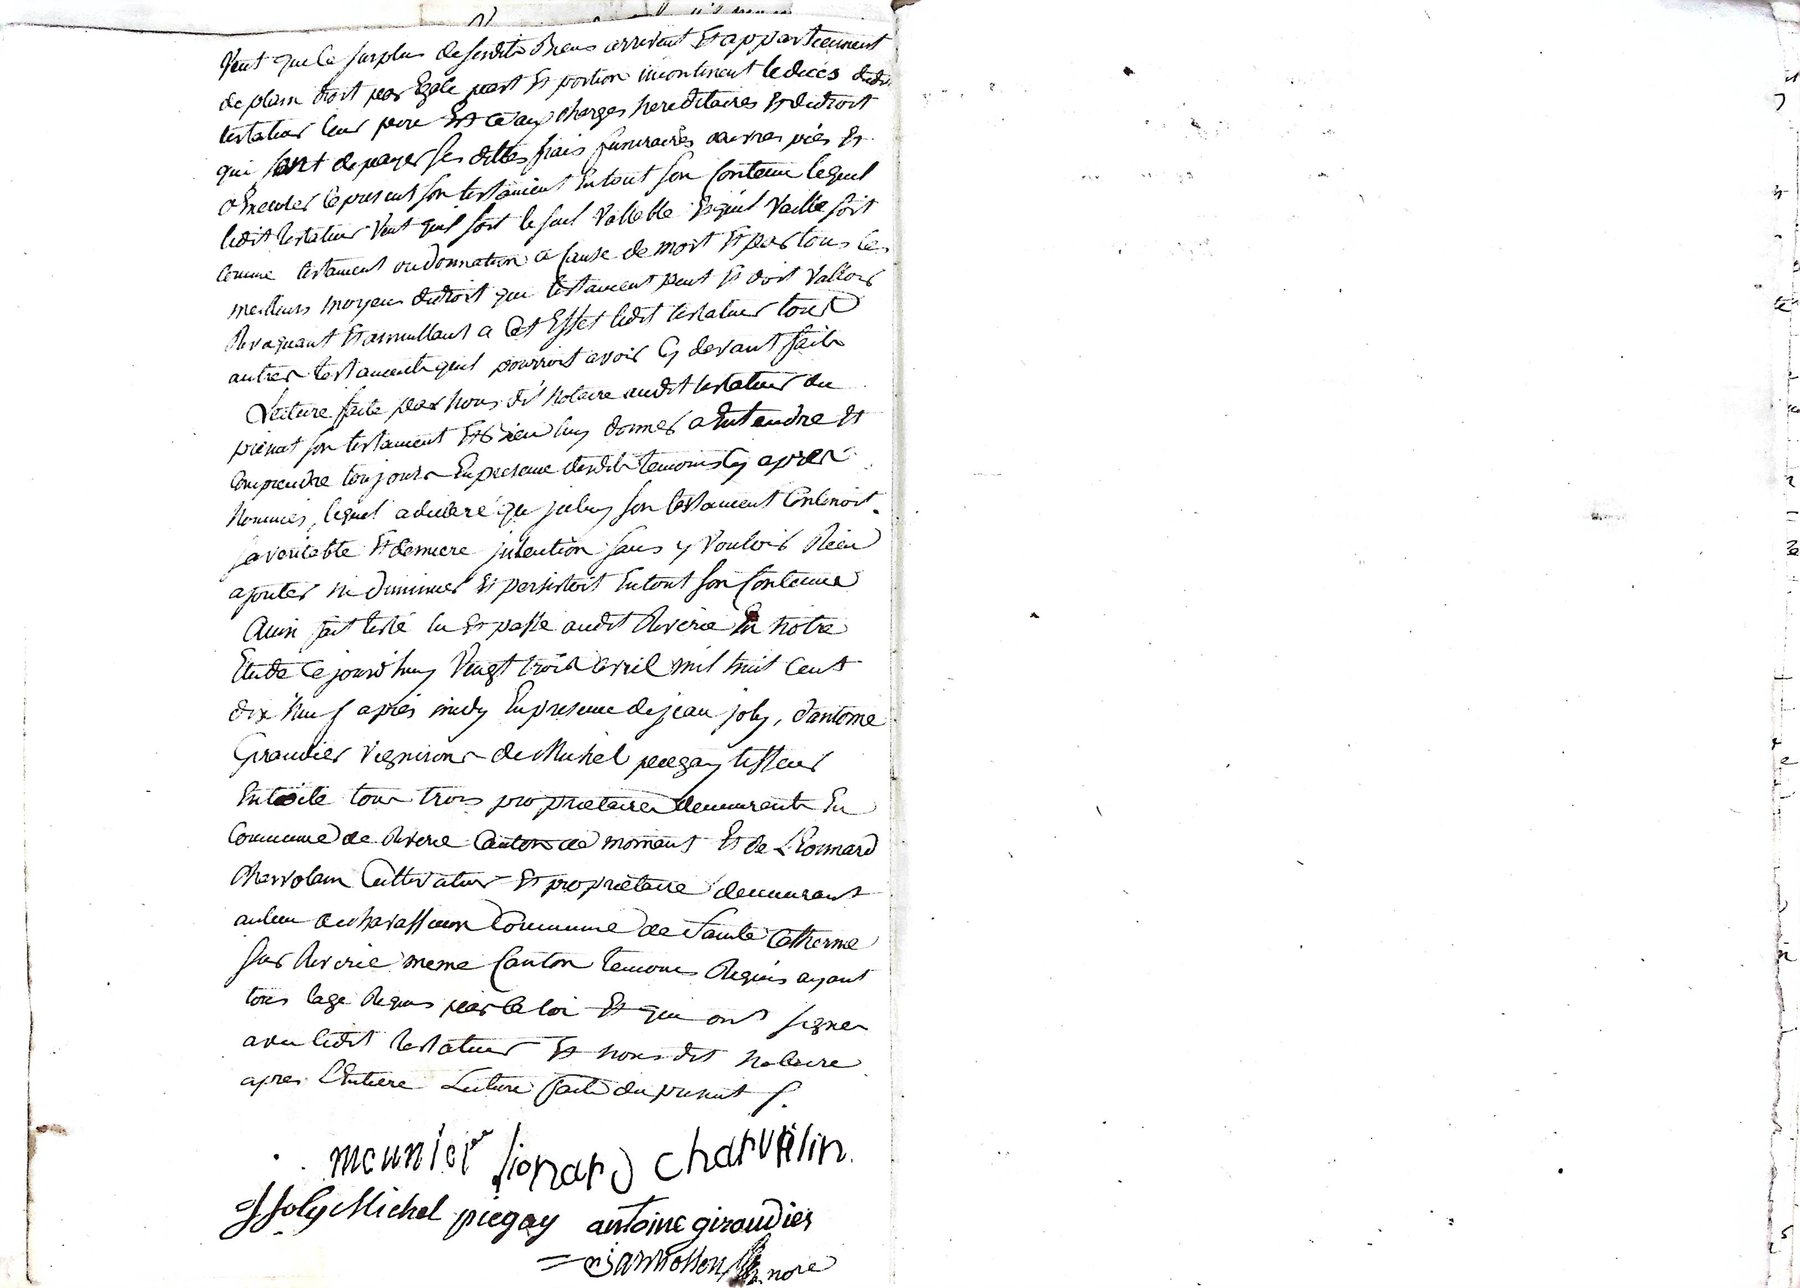 Veut que le surplus de sesdits Biens arrivent Et appartiennent
de plein droit par Egale part Et portion incontinent le décés dudit
testateur leur pere Et ce aux charges hereditaires Et de droit
qui sont de payer ses dettes frais funeraires œuvres pies Et
d'Executer le present son testament En tout son Contenu lequel
ledit testateur Veut quil soit le seul Vallable Et quil Vaille soit
comme testament ou donnation a Cause de mort Et par tous les
meilleurs moyens de droit que testament peut Et doit Valloir
Revoquant Et annullant a Cet Effet ledit testateur tout
autres testaments quil pourroit avoir Cy devant faits
Lecture faite par nous dit Notaire audit testateur du
présent son testament Et Bien luy donner a Entendre Et
Comprendre toujours En presence desdits temoins Cy apres
Nommés, lequel a declaré que jceluy son testament Contenoit
sa veritable Et derniere jntention sans y Vouloir Rien
ajouter ni diminuer Et persistoit En tout son Contenu
Ainsi fait testé lu Et passé audit Riverie En notre
Etude Cejourd'huy Vingt trois avril mil huit Cent
dix Neuf apres midy En presence de jean joly, d'antoine
Giraudier Vignerons de Michel piegay tisseur
En toile tous trois proprietaires demeurants En
Commune de Riverie Canton de mornant Et de Lëonnard
Charvolin Cultivateur Et proprietaire demeurant
au lieu de Commune de Sainte Catherine
sur Riverie meme Canton temoins Requis ayant
tous lage Requis par la loi Et qui ont signer
avec ledit testateur Et nous dit Notaire
apres L'Entiere Lecture faite du present
meunier lionard charvolin
J Joly Michel piegay antoine giraudier
nore